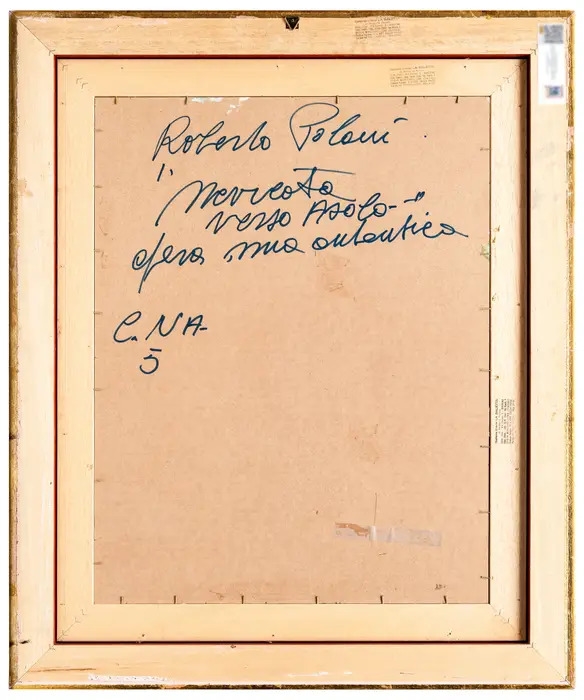 Roberto Poloni
"Nevicata
verso Asolo-"
opera mia autentica
C. NA-
5